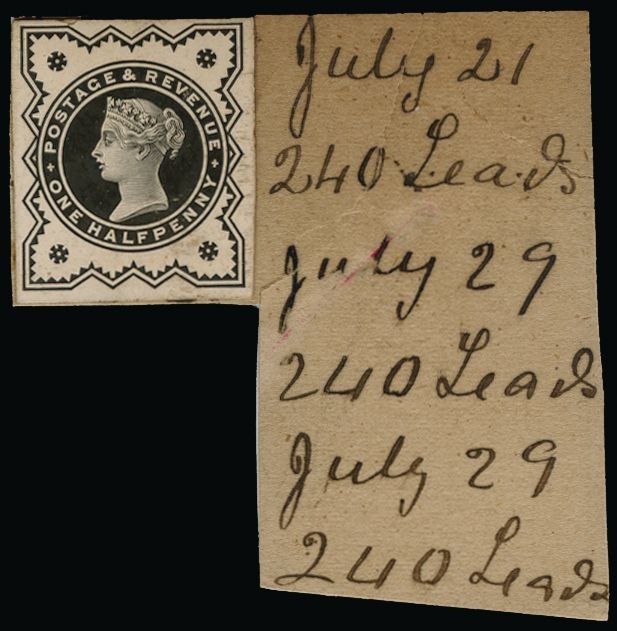 POSTAGE & REVENUE
ONE HALFPENNY
July 21
240 Leads
July 29
240 Leads
July 29
240 Leads